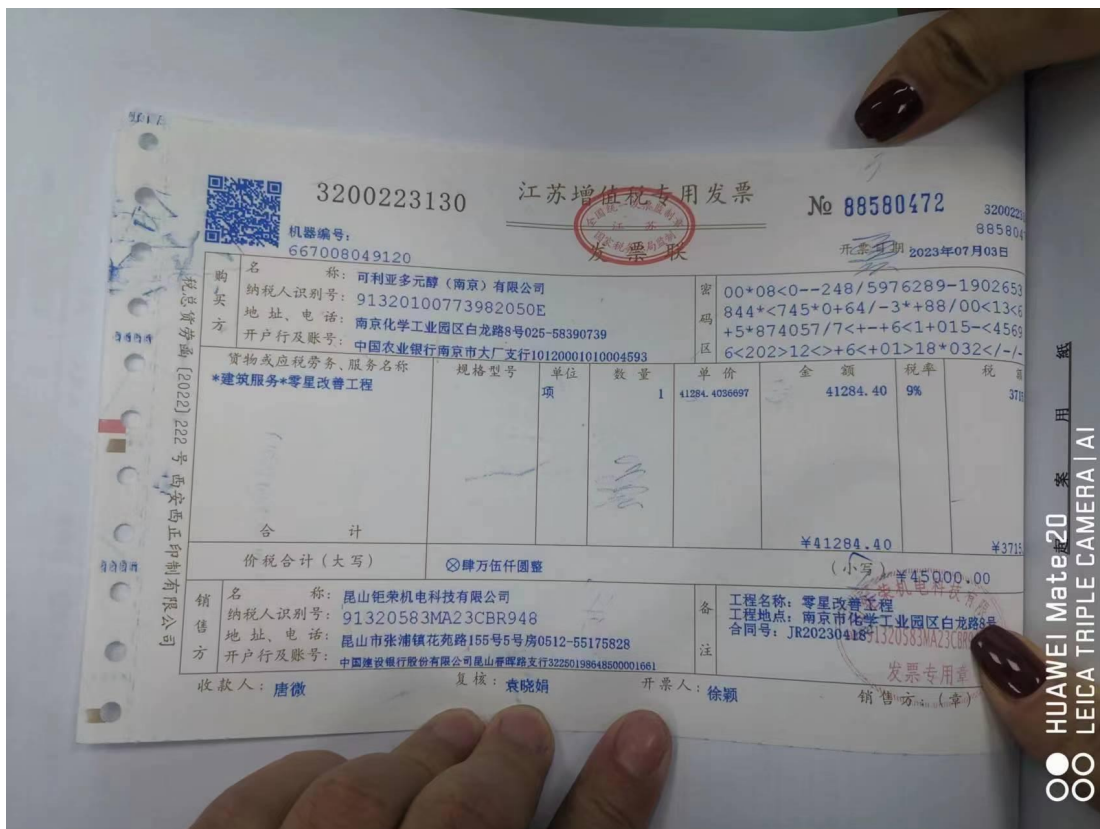 3200223130
江苏增值税专用发票
发票联
№ 88580472
机器编号:
667008049120
开票日期 2023年07月03日
购买方
名称: 可利亚多元醇（南京）有限公司
纳税人识别号: 91320100773982050E
地址、电话: 南京化学工业园区白龙路8号025-58390739
开户行及账号: 中国农业银行南京市大厂支行10120001010004593
密码区
00*08<0--248/5976289-1902653
844*<745*0+64/-3*+88/00<13<6
+5*874057/7<+-+6<1+015-<4569
6<202>12<>+6<+01>18*032</-/-
货物或应税劳务、服务名称 规格型号 单位 数量 单价 金额 税率 税额
*建筑服务*零星改善工程 项 1 41284.4036697 41284.40 9%
合计 ¥41284.40
价税合计（大写） ⊗肆万伍仟圆整 （小写） ¥45000.00
销售方
名称: 昆山钜荣机电科技有限公司
纳税人识别号: 91320583MA23CBR948
地址、电话: 昆山市张浦镇花苑路155号5号房0512-55175828
开户行及账号: 中国建设银行股份有限公司昆山春晖路支行32250198648500001661
备注
工程名称: 零星改善工程
工程地点: 南京市化学工业园区白龙路8号
合同号: JR20230418
发票专用章
收款人: 唐微 复核: 袁晓娟 开票人: 徐颖 销售方:（章）
税总货劳函〔2022〕222号 西安西正印制有限公司
案用纸
HUAWEI Mate 20
LEICA TRIPLE CAMERA | AI